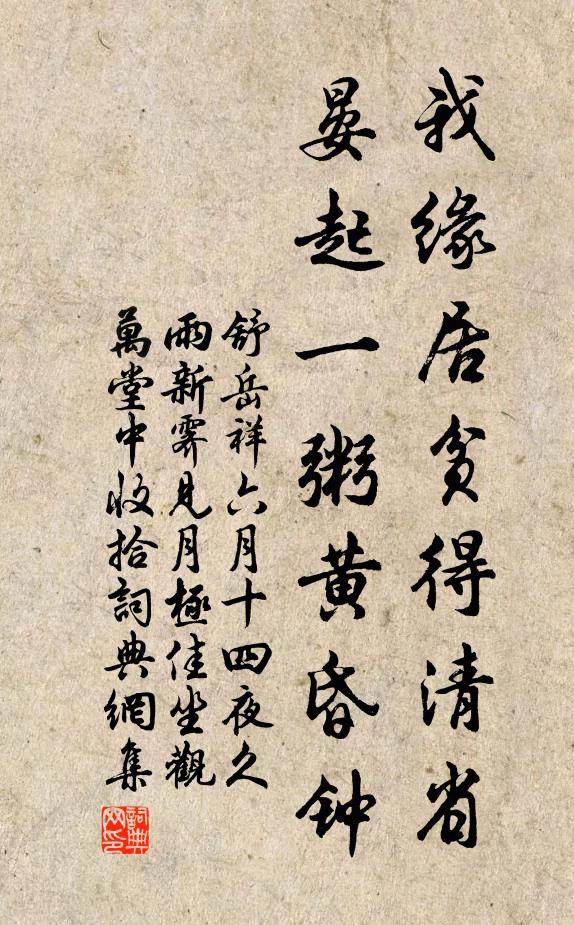 我缘居贫得清省
晏起一粥黄昏钟
舒岳祥六月十四夜久
雨新霁见月极佳坐觀
萬堂中收拾詞典網集
詞典网印